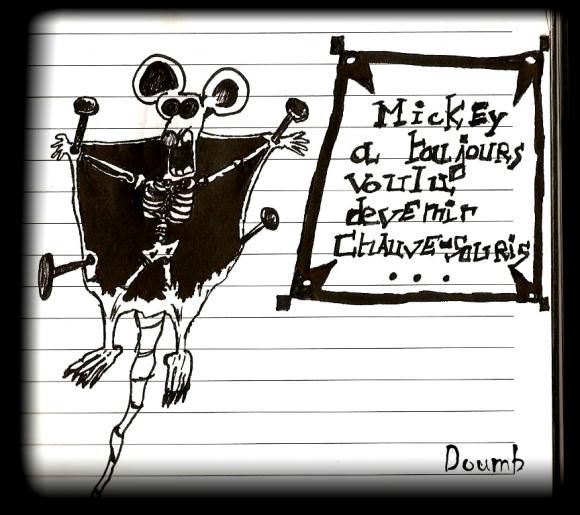 Mickey
a toujours
voulu
devenir
chauve-souris
...
Doumb